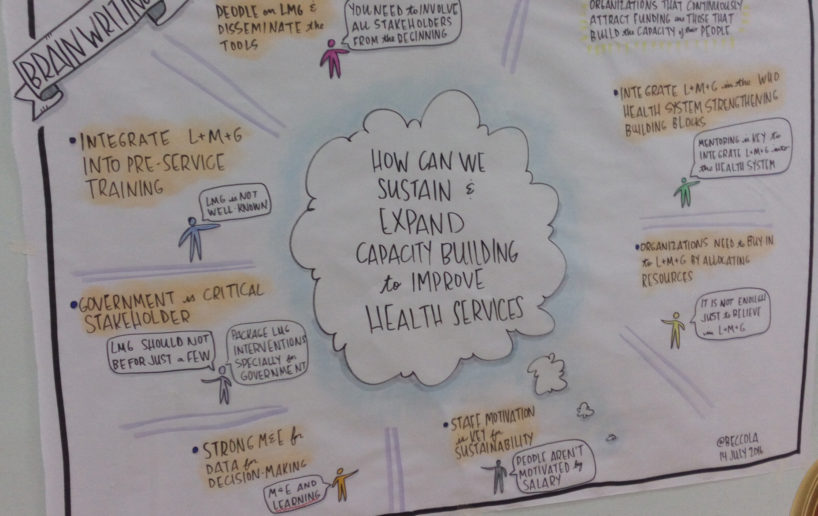 BRAINWRITING
PEOPLE on LMG &
DISSEMINATE the
TOOLS
YOU NEED to INVOLVE
ALL STAKEHOLDERS
FROM the BEGINNING
ORGANIZATIONS THAT CONTINUOUSLY
ATTRACT FUNDING are THOSE THAT
BUILD the CAPACITY of their PEOPLE
• INTEGRATE L+M+G
INTO PRE-SERVICE
TRAINING
LMG is NOT
WELL KNOWN
HOW CAN WE
SUSTAIN &
EXPAND
CAPACITY BUILDING
to IMPROVE
HEALTH SERVICES
• INTEGRATE L+M+G in the WHO
HEALTH SYSTEM STRENGTHENING
BUILDING BLOCKS
MENTORING is KEY to
INTEGRATE L+M+G into
the HEALTH SYSTEM
• GOVERNMENT is CRITICAL
STAKEHOLDER
LMG SHOULD NOT
BE FOR JUST a FEW
PACKAGE LMG
INTERVENTIONS
SPECIALLY for
GOVERNMENT
• ORGANIZATIONS NEED to BUY IN
to L+M+G BY ALLOCATING
RESOURCES
IT IS NOT ENOUGH
JUST to BELIEVE
in L+M+G
• STRONG M&E for
DATA for
DECISION-MAKING
M&E AND
LEARNING
• STAFF MOTIVATION
is KEY for
SUSTAINABILITY
PEOPLE AREN'T
MOTIVATED by
SALARY
@BECCOLA
14 JULY 2016